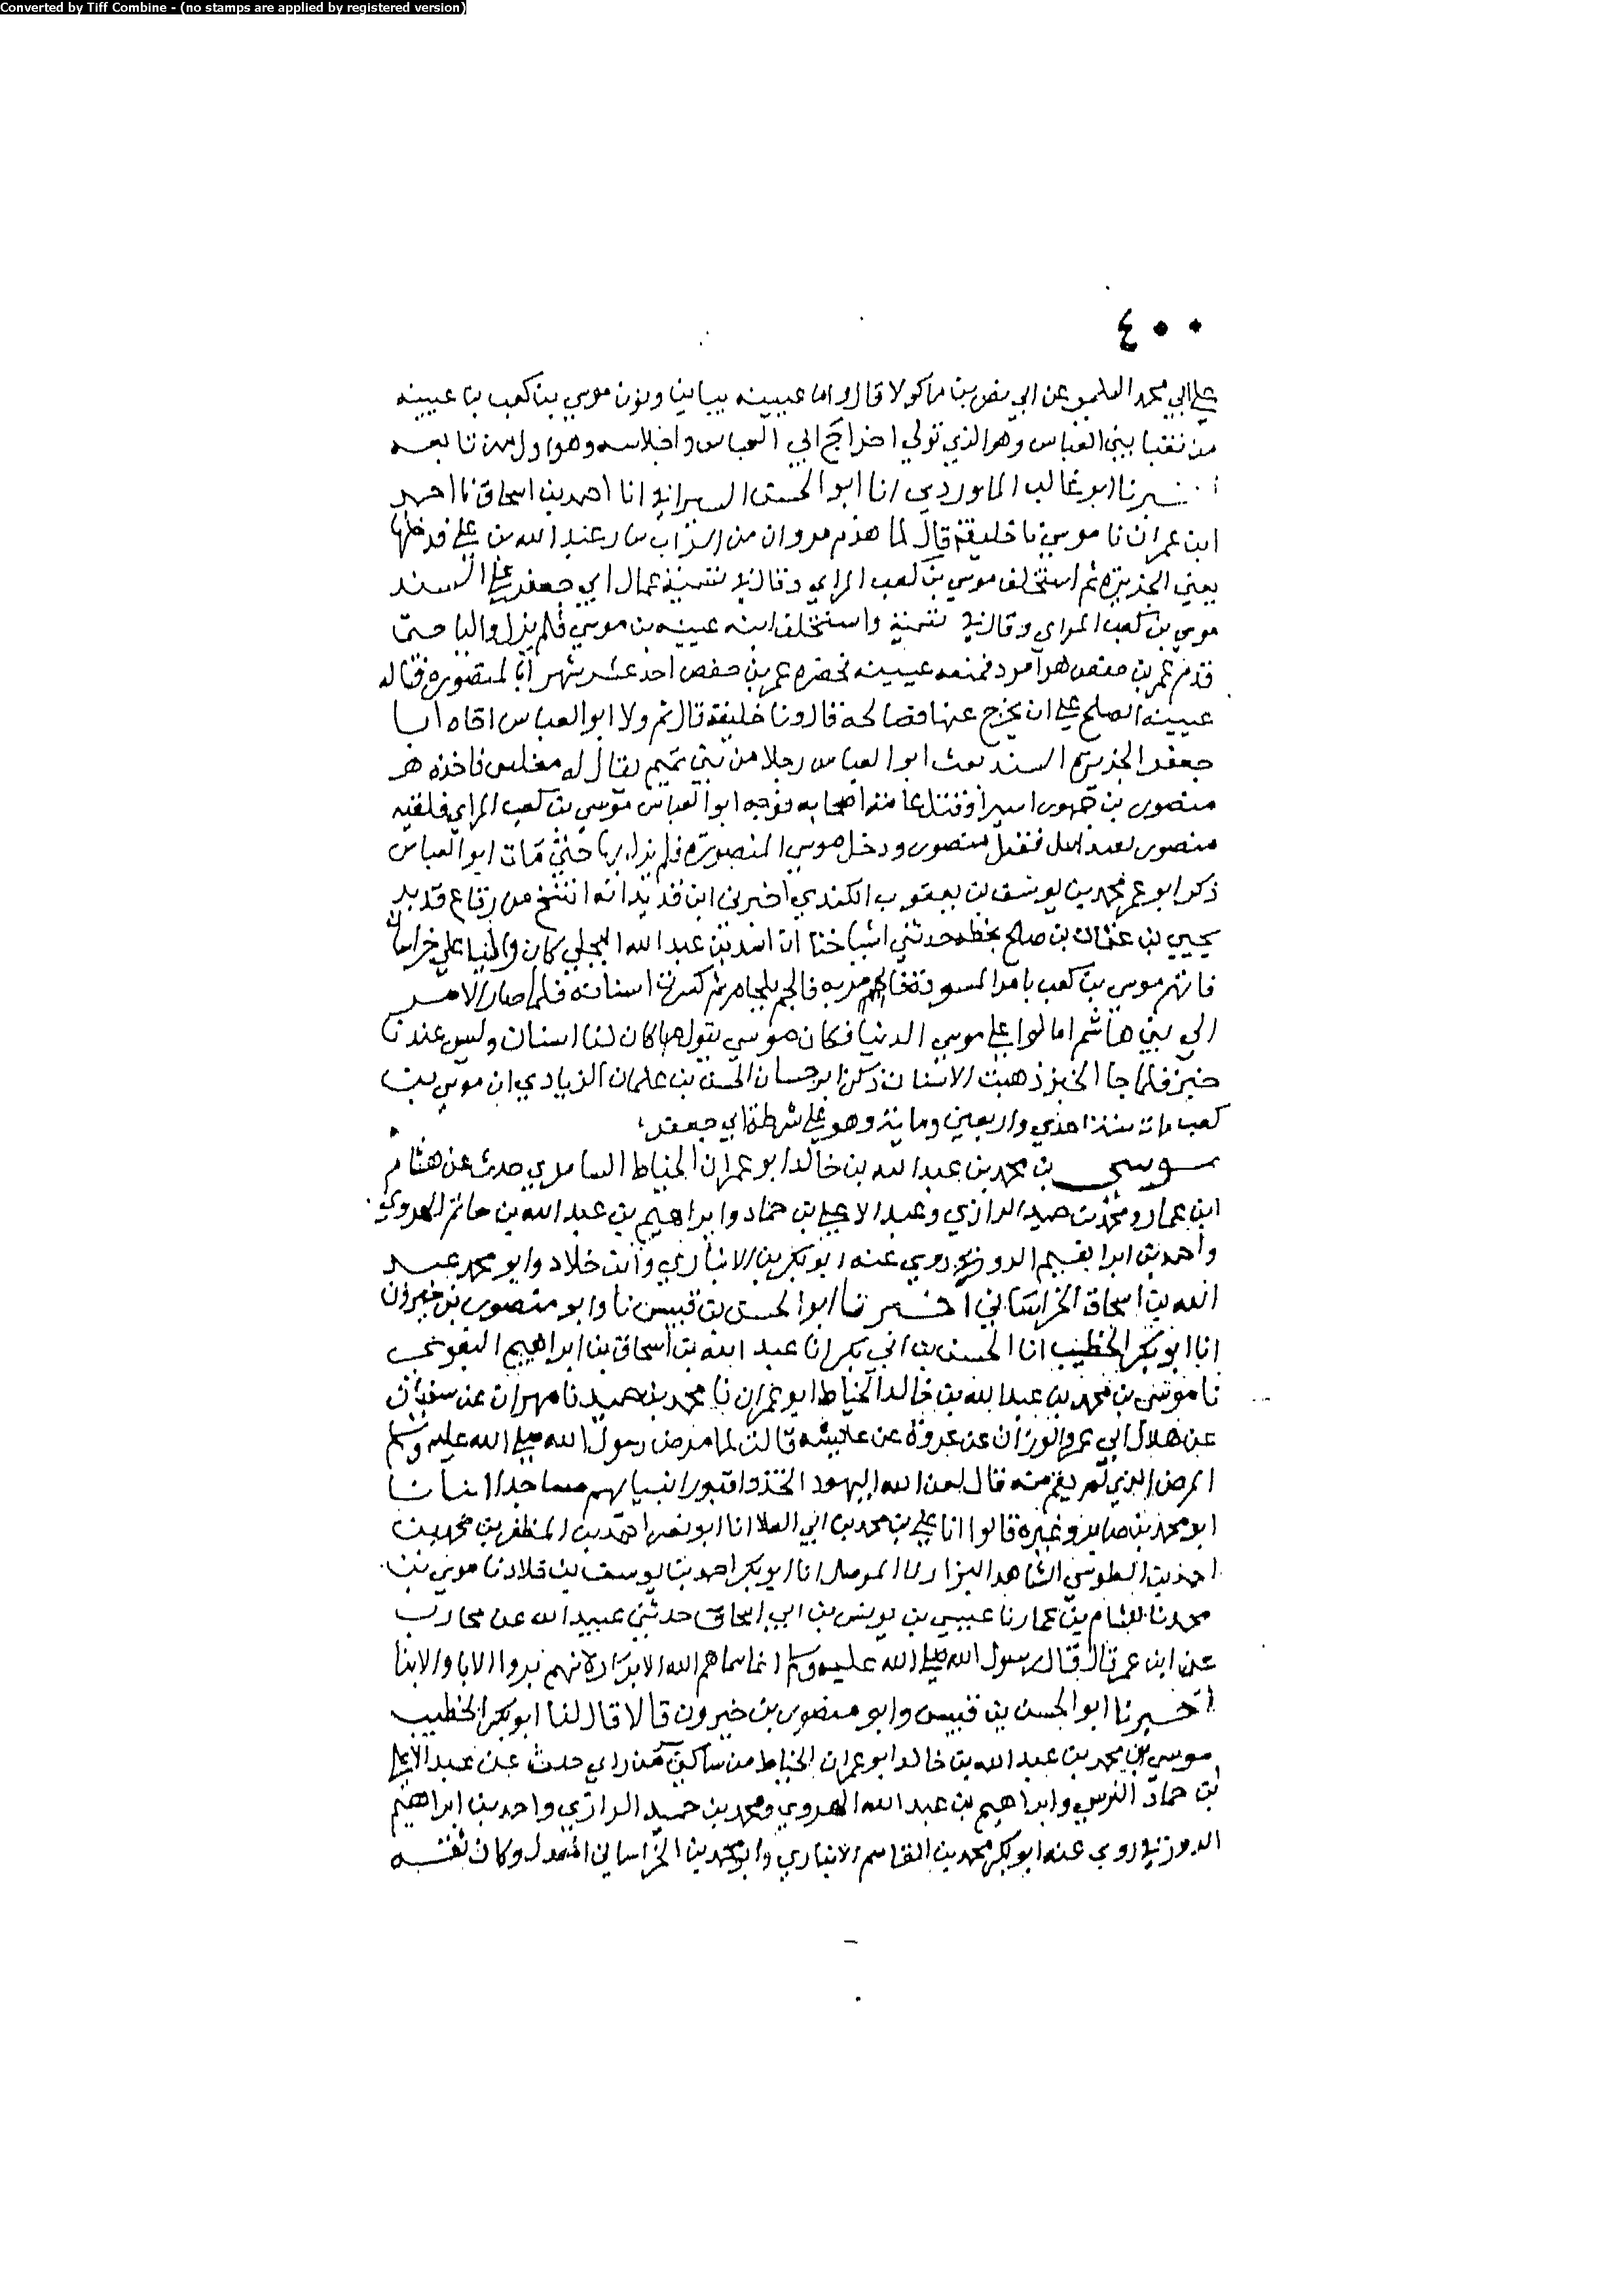 Converted by Tiff Combine - (no stamps are applied by registered version)
٤٠٠
علي ابي محمد السلمي عن ابي نصر بن ماكولا قال واما عيينه بيائين ونون موسي بن كعب بن عيينه
من نقبا بني العباس وهو الذي تولي اخراج ابي العباس واجلاسه وهو اول من تابعه
اخبرنا ابو غالب الماوردي انا ابو الحسن السيرافي انا احمد بن اسحاق نا احمد
ابن عمران نا موسي نا خليفة قال لما هزم مروان من الزاب سار عبد الله بن علي فدخلها
يعني الجزيره ثم استخلف موسي بن كعب المراي وقال في تسمية عمال ابي جعفر علي السند
موسي بن كعب المراي وقال في تسمية واستخلف ابنه عيينه بن موسي فلم يزل واليا حتي
قدم عمر بن حفص هزامرد فمنعه عيينه فحصره عمر بن حفص احد عشر شهرا بالمنصوره فساله
عيينه الصلح علي ان يخرج عنها فصالحه قال ونا خليفة قال ثم ولا ابو العباس اخاه ابا
جعفر الجزيرة السند بعث ابو العباس رجلا من بني تميم يقال له مغلس فاخذه
منصور بن جمهور اسيرا وقتل عامة اصحابه فوجه ابو العباس موسي بن كعب المراي فلقيه
منصور بقندابيل فقتل منصور ودخل موسي المنصورة فلم يزل بها حتي مات ابو العباس
ذكر ابو عمر محمد بن يوسف بن يعقوب الكندي اخبرني ابن قديد انه انتسخ من رقاع قديد
يحيي بن عثمان بن صالح بخطه حدثني اشياخنا ان اسد بن عبد الله البجلي كان واليا علي خراسان
فاتهم موسي بن كعب بامر المسودة فالجم بلجام ثم كسرت اسنانه فلما صار الامر
الي بني هاشم امالوا علي موسي الدنيا فكان موسي يقول كان لنا اسنان وليس عندنا
خبز فلما جا الخبز ذهبت الاسنان ذكر ابو حسان الحسن بن عثمان الزيادي ان موسي بن
كعب مات سنة احدي واربعين وماية وهو علي شرطة ابي جعفر
موسي بن محمد بن عبد الله بن خالد ابو عمران الخياط السامري حدث عن هشام
ابن عمار ومحمد بن حميد الرازي وعبد الاعلي بن حماد وابراهيم بن عبد الله بن حاتم الهروي
واحمد بن ابراهيم الدورقي روي عنه ابو بكر بن الانباري وابن خلاد وابو محمد عبد
الله بن اسحاق الخراساني اخبرنا ابو الحسن بن قبيس نا وابو منصور بن خيرون
انا ابو بكر الخطيب انا الحسن بن ابي بكر انا عبد الله بن اسحاق بن ابراهيم البغوي
نا موسي بن محمد بن عبد الله بن خالد الخياط ابو عمران نا محمد بن حميد نا مهران عن سفيان
عن هلال ابي عمرو الوزان عن عروة عن عايشه قالت لما مرض رسول الله صلي الله عليه وسلم
المرض الذي لم يقم منه قال لعن الله اليهود اتخذوا قبور انبيايهم مساجدا انبانا
ابو محمد بن صابر وغيره قالوا انا علي بن محمد بن ابي العلا انا ابو نصر احمد بن المظفر بن محمد بن
احمد بن الطوسي الشاهد البزار الموصل انا ابو بكر احمد بن يوسف بن خلاد نا موسي بن
محمد نا هشام بن عمار نا عيسي بن يونس بن ابي اسحاق حدثني عبيد الله عن محارب
عن ابن عمر قال قال رسول الله صلي الله عليه وسلم انما سماهم الله الابرار لانهم بروا الابا والابنا
اخبرنا ابو الحسن بن قبيس وابو منصور بن خيرون قالا قال لنا ابو بكر الخطيب
موسي بن محمد بن عبد الله بن خالد ابو عمران الخياط من ساكني سر من راي حدث عن عبد الاعلي
بن حماد النرسي وابراهيم بن عبد الله الهروي ومحمد بن حميد الرازي واحمد بن ابراهيم
الدورقي روي عنه ابو بكر محمد بن القاسم الانباري وابو محمد بن الخراساني المعدل وكان ثقه